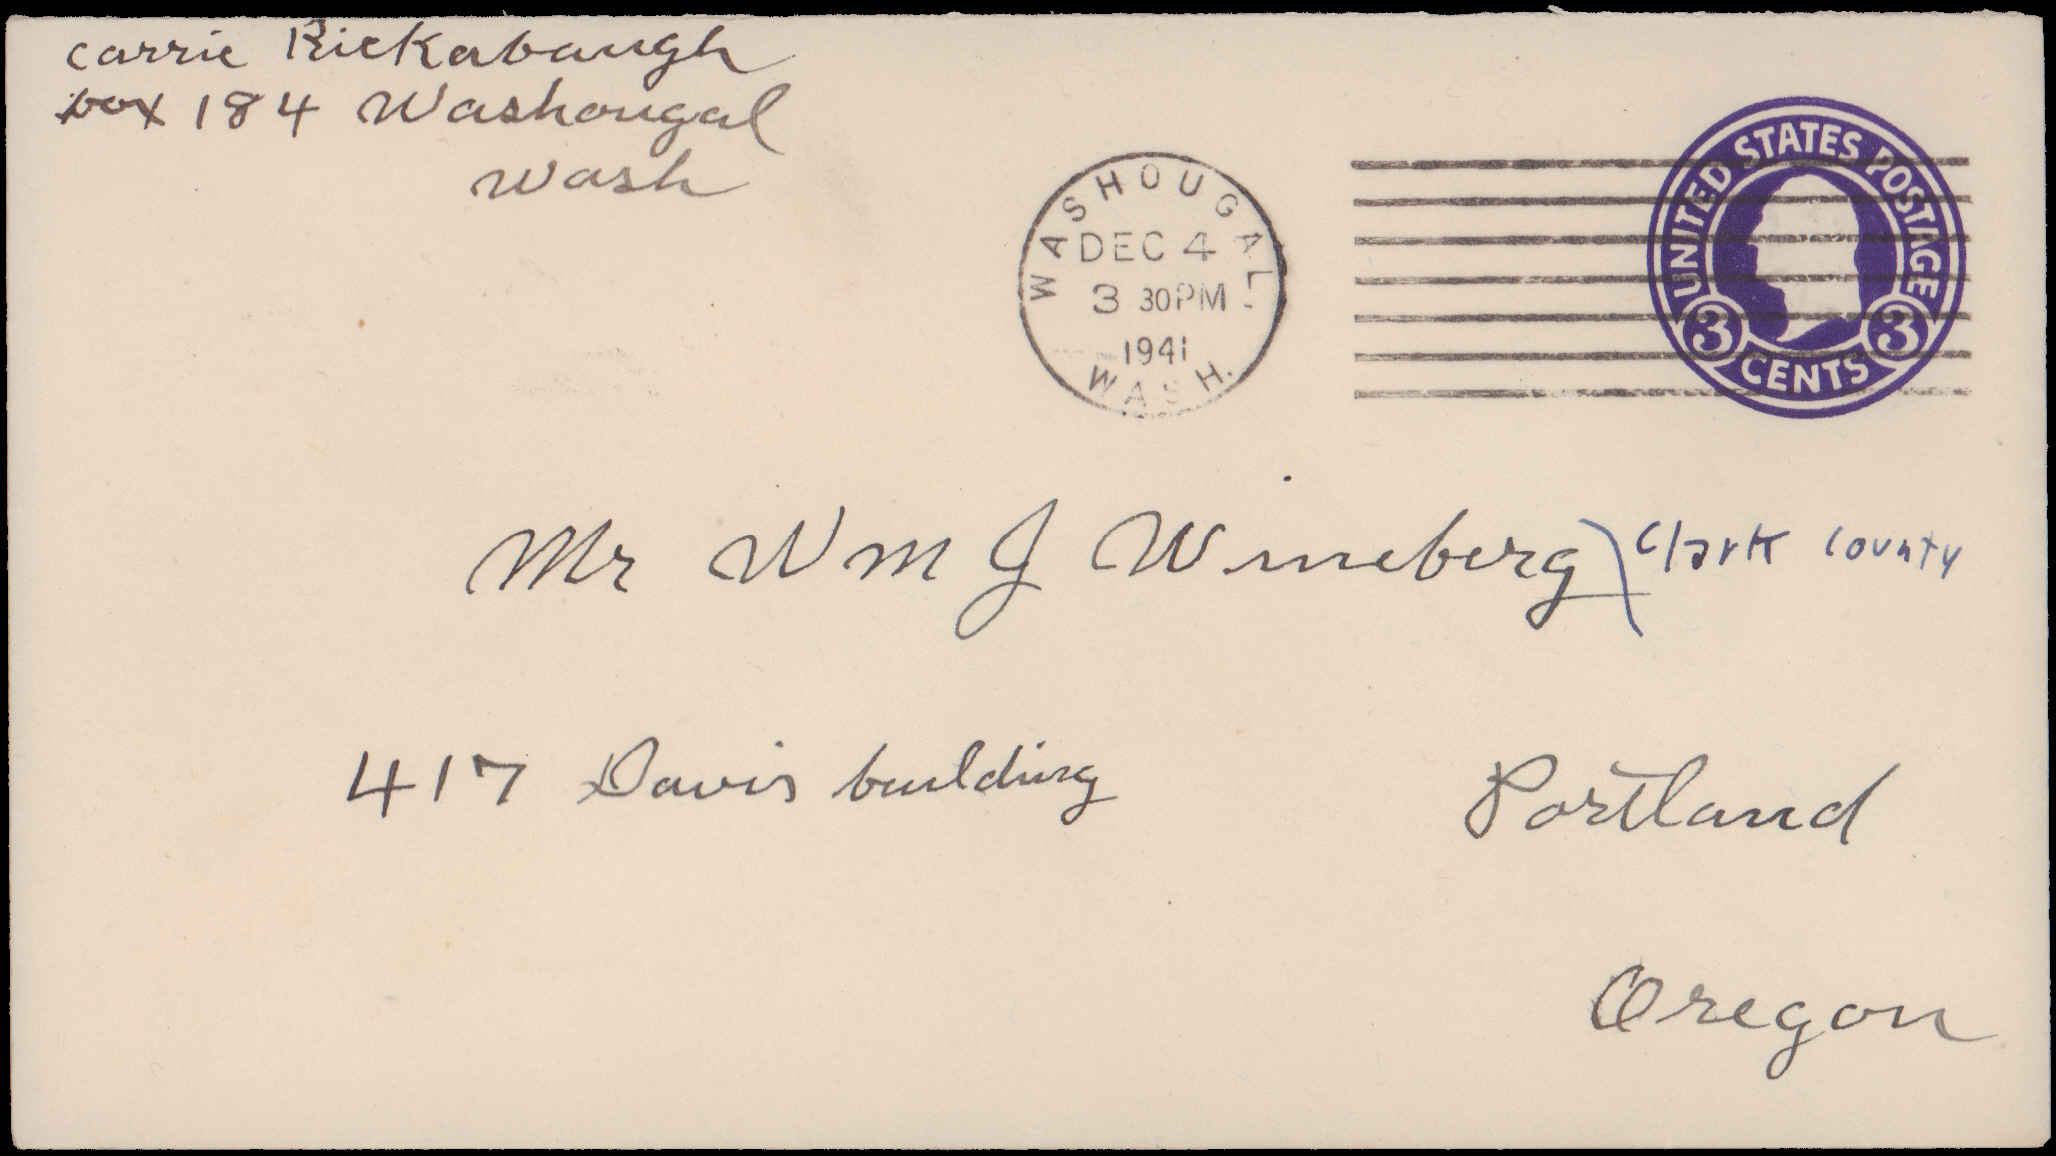 Carrie Rickabaugh
box 184 Washougal
Wash
WASHOUGAL
DEC 4
3 30PM
1941
WASH.
UNITED STATES POSTAGE
3 3
CENTS
Mr Wm J Wineberg) Clark County
417 Davis building
Portland
Oregon